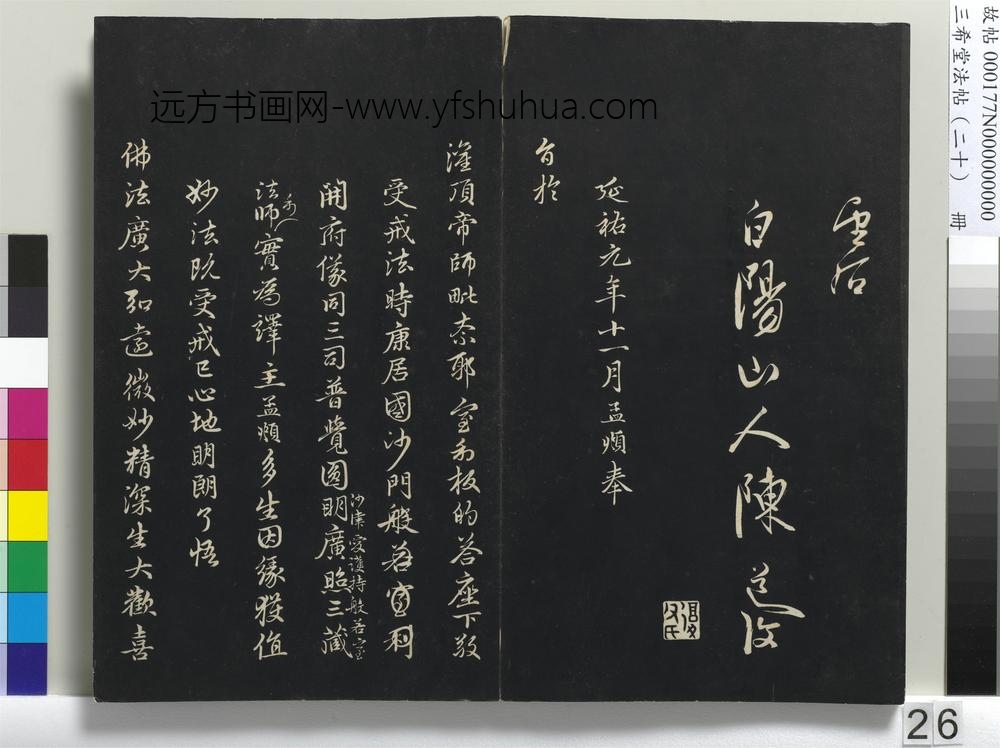 远方书画网-www.yfshuhua.com
故帖 000177N000000000
三希堂法帖(二十) 册
白陽山人陳道復
復父氏
延祐元年十一月孟頫奉
旨於
灌頂帝師毗奈耶室利板的答座下敬
受戒法時康居國沙門般若室利
開府儀同三司普覺圓明廣照三藏
沙律愛護持般若室利
法師實為譯主孟頫多生因緣獲值
妙法既受戒已心地明朗了悟
佛法廣大弘遠微妙精深生大歡喜
26